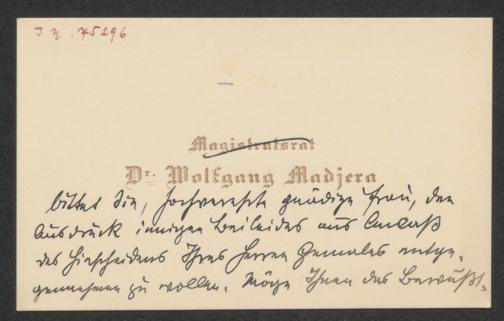 I. N. 75296
Magistratsrat
Dr. Wolfgang Madjera
bittet Sie, hochverehrte gnädige Frau, den
Ausdruck innigen Beileides aus Anlaß
des Hinscheidens Ihres Herrn Gemales entge-
gennehmen zu wollen. Möge Ihnen das Bewußt-